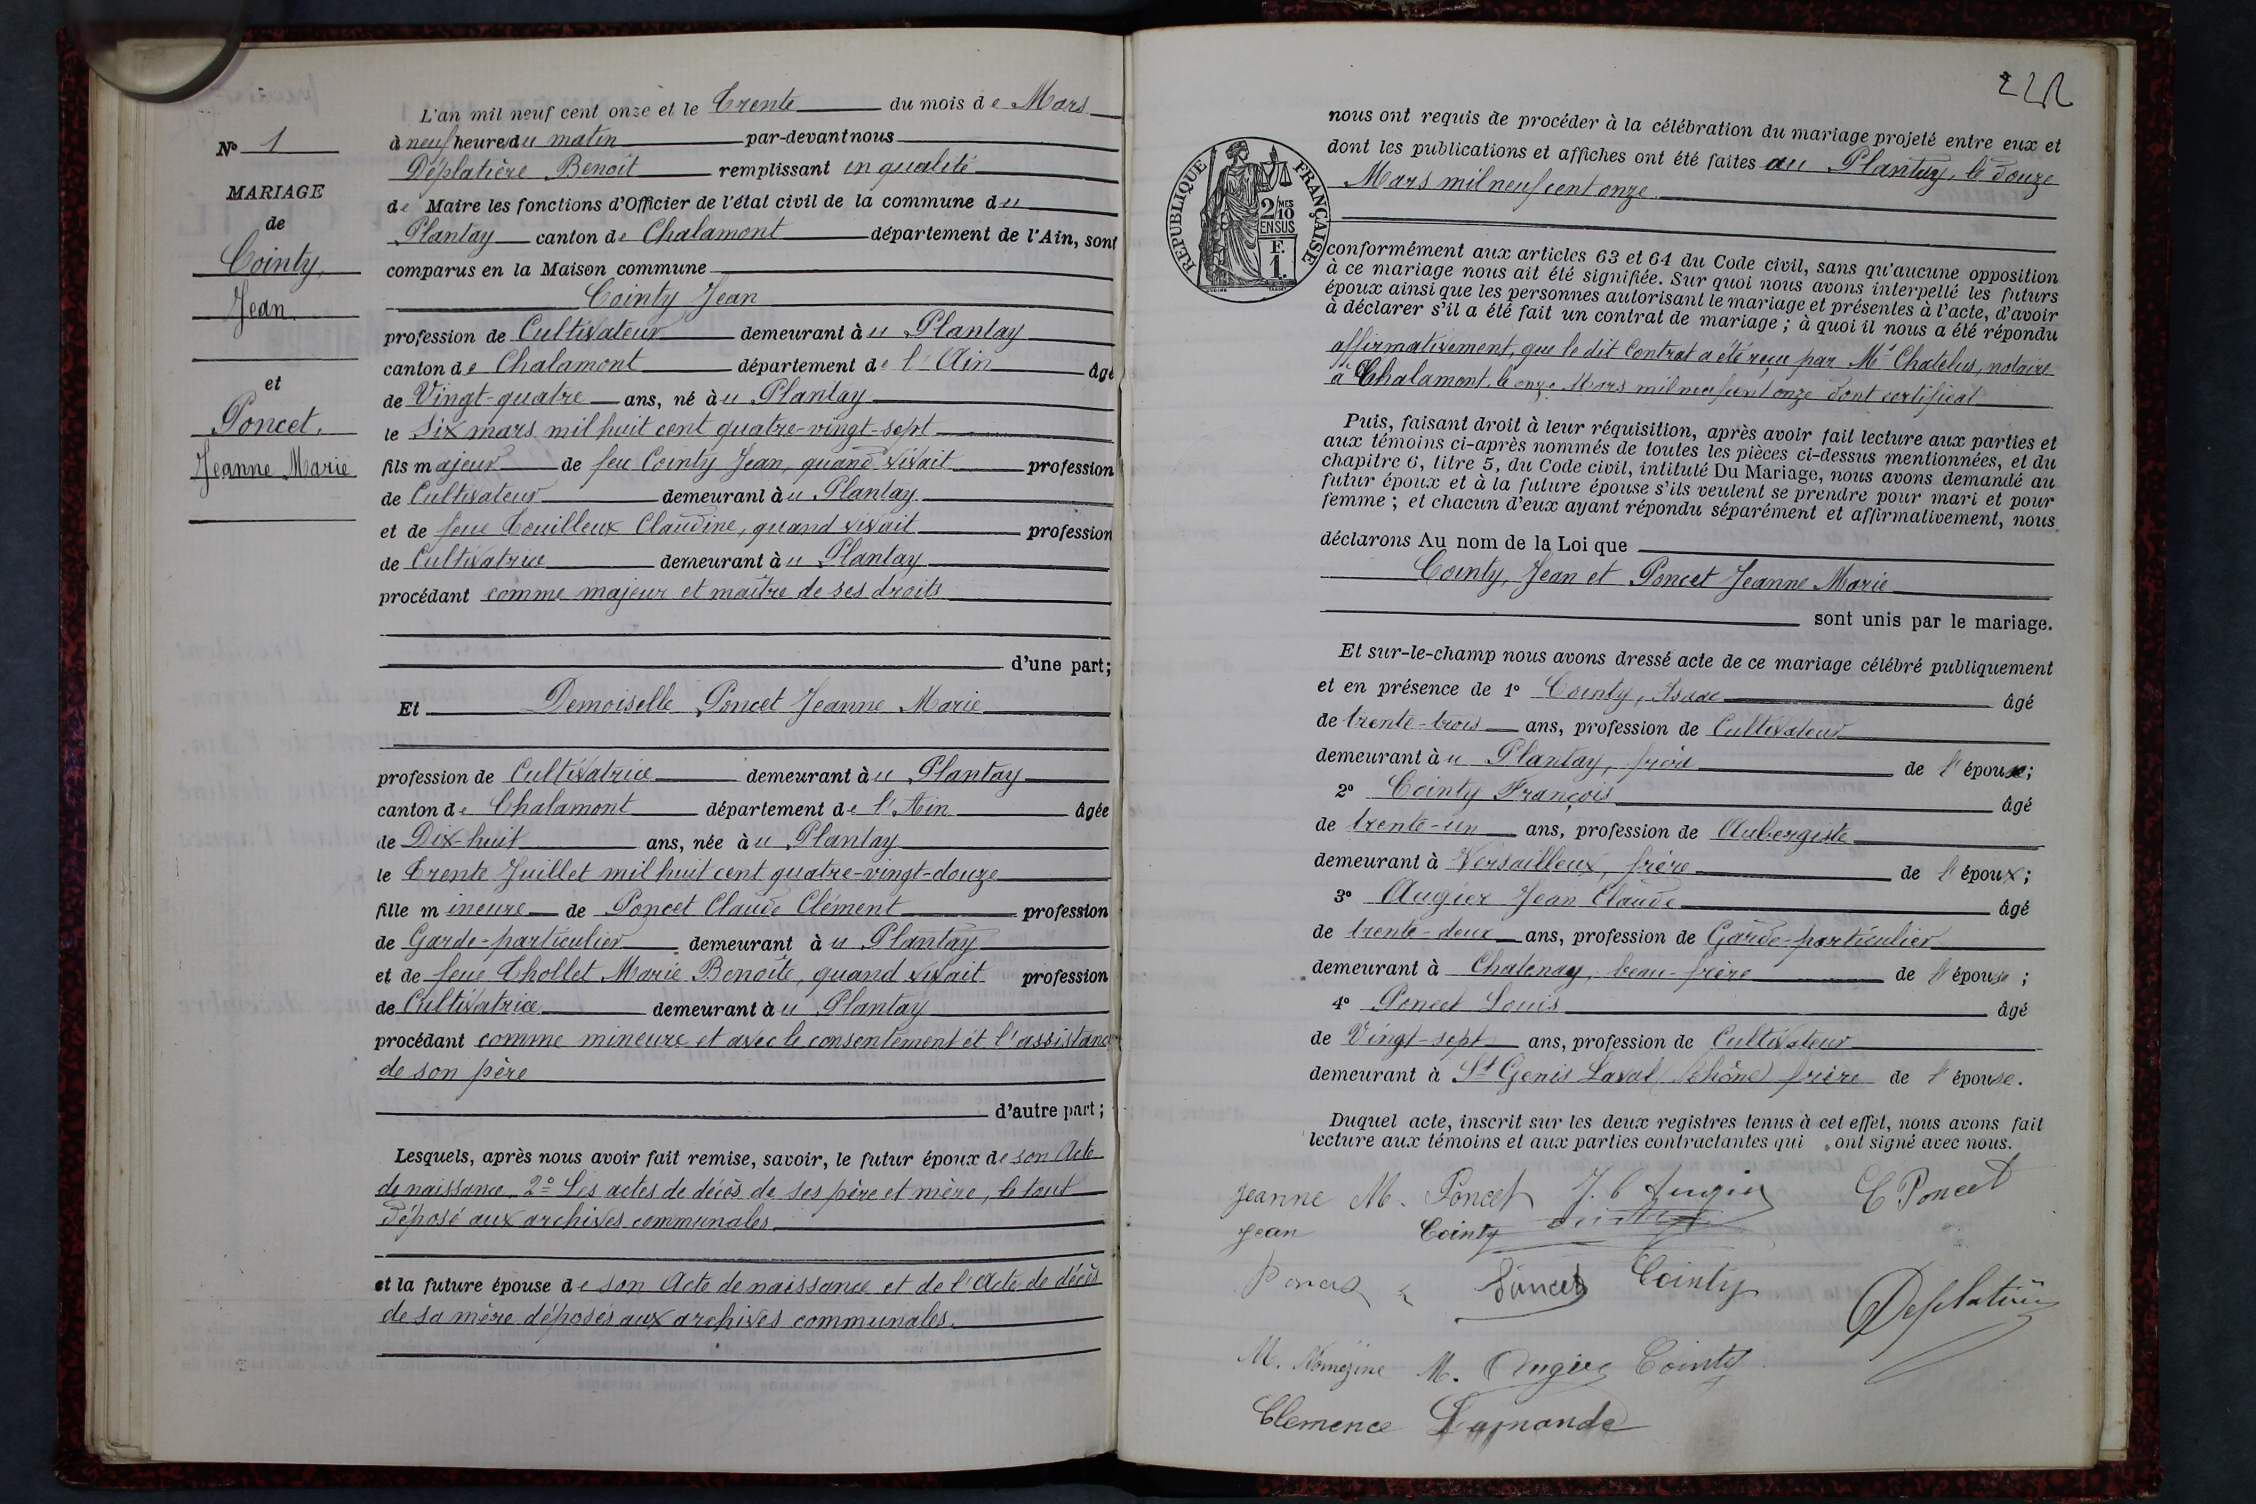 L'an mil neuf cent onze et le Trente du mois de Mars
à neuf heure du matin par-devant nous
Déplatière Benoit remplissant en qualité
de Maire les fonctions d'Officier de l'état civil de la commune du
Plantay canton de Chalamont département de l'Ain, sont
comparus en la Maison commune
Cointy Jean
profession de Cultivateur demeurant à u Plantay
canton de Chalamont département de l'Ain âgé
de Vingt-quatre ans, né à u Plantay
le Six mars mil huit cent quatre-vingt-sept
fils majeur de feu Cointy Jean, quand vivait profession
de Cultivateur demeurant à u Plantay
et de feue Touilleux Claudine, quand vivait profession
de Cultivatrice demeurant à u Plantay
procédant comme majeur et maître de ses droits
d'une part;
Et Demoiselle Poncet Jeanne Marie
profession de Cultivatrice demeurant à u Plantay
canton de Chalamont département de l'Ain âgée
de Dix-huit ans, née à u Plantay
le Trente Juillet mil huit cent quatre-vingt-douze
fille mineure de Poncet Claude Clément profession
de Garde-particulier demeurant à u Plantay
et de feue Thollet Marie Benoîte, quand vivait profession
de Cultivatrice demeurant à u Plantay
procédant comme mineure et avec le consentement et l'assistance
de son père
d'autre part;
Lesquels, après nous avoir fait remise, savoir, le futur époux de son Acte
de naissance 2º Les actes de décès de ses père et mère, le tout
déposé aux archives communales
et la future épouse de son Acte de naissance et de l'Acte de décès
de sa mère déposés aux archives communales.
Nº 1
MARIAGE
de
Cointy,
Jean
et
Poncet,
Jeanne Marie
RÉPUBLIQUE FRANÇAISE
2/10 MES
EN SUS
F.
1.
nous ont requis de procéder à la célébration du mariage projeté entre eux et
dont les publications et affiches ont été faites au Plantay, le douze
Mars mil neuf cent onze
conformément aux articles 63 et 64 du Code civil, sans qu'aucune opposition
à ce mariage nous ait été signifiée. Sur quoi nous avons interpellé les futurs
époux ainsi que les personnes autorisant le mariage et présentes à l'acte, d'avoir
à déclarer s'il a été fait un contrat de mariage; à quoi il nous a été répondu
affirmativement, que le dit Contrat a été reçu par Me Chatelus, notaire
à Chalamont, le onze Mars mil neuf cent onze dont certificat
Puis, faisant droit à leur réquisition, après avoir fait lecture aux parties et
aux témoins ci-après nommés de toutes les pièces ci-dessus mentionnées, et du
chapitre 6, titre 5, du Code civil, intitulé Du Mariage, nous avons demandé au
futur époux et à la future épouse s'ils veulent se prendre pour mari et pour
femme; et chacun d'eux ayant répondu séparément et affirmativement, nous
déclarons Au nom de la Loi que
Cointy, Jean et Poncet Jeanne Marie
sont unis par le mariage.
Et sur-le-champ nous avons dressé acte de ce mariage célébré publiquement
et en présence de 1º Cointy, Isaac âgé
de trente-trois ans, profession de Cultivateur
demeurant à u Plantay, frère de l'époux;
2º Cointy François âgé
de trente-un ans, profession de Aubergiste
demeurant à Versailleux, frère de l'époux;
3º Augier Jean Claude âgé
de trente-deux ans, profession de Garde-particulier
demeurant à Chatenay, beau-frère de l'épouse;
4º Poncet Louis âgé
de Vingt-sept ans, profession de Cultivateur
demeurant à St Genis Laval (Rhône) frère de l'épouse.
Duquel acte, inscrit sur les deux registres tenus à cet effet, nous avons fait
lecture aux témoins et aux parties contractantes qui ont signé avec nous.
Jeanne M. Poncet J. C Augier C Poncet
Jean Cointy
Poncet Cointy
Deplatière
M. M. Augier Cointy
Clemence